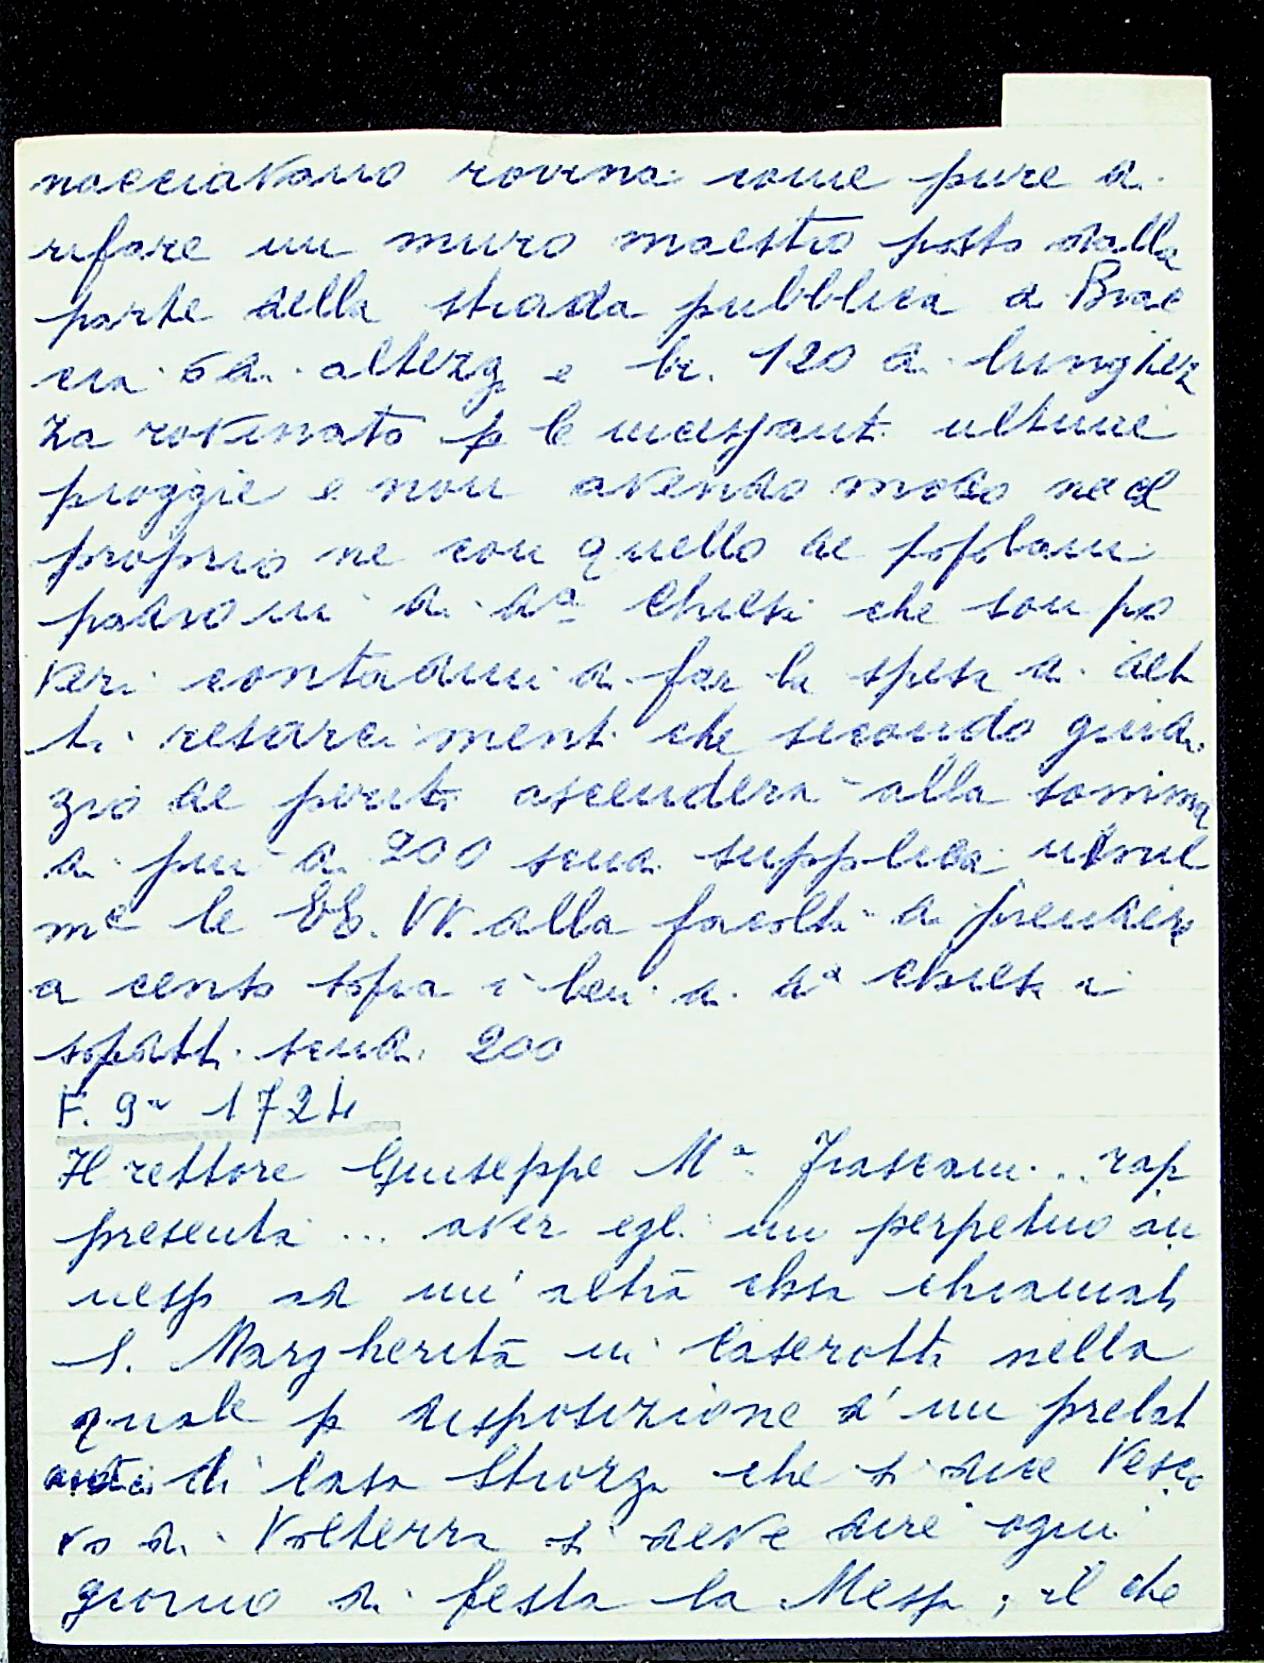 nacciavano rovina come pure di
rifare un muro maestro posto dalla
parte della strada pubblica di Brac
cia 6 di altezz e br. 120 di lunghez
za rovinato p le incessant. ultime
pioggie e non avendo modo ne del
proprio ne con quello de popolani
padroni di dᵃ Chiesa che son po
veri contadini di far la spesa di det
ti resarcimenti che secondo giudi
zio de periti ascenderà alla somma
di piu di 200 scudi supplica umil
mᵉ le EE. VV. alla facoltà di prender
a censo sopra i beni di dᵃ chiesa i
sopᵃdtti scudi 200
F. 9ᵃ 1724
Il rettore Giuseppe Mᵃ Frascani... rap
presenta ... aver egli un perpetuo an
nesso ad un'altra chsa chiamata
S. Margherita in Caserotta nella
quale p disposizione d'un prelat
di Casa Strozzi che si dice Vesco
vo di Volterra si deve dire ogni
giorno di festa la Messa, il che